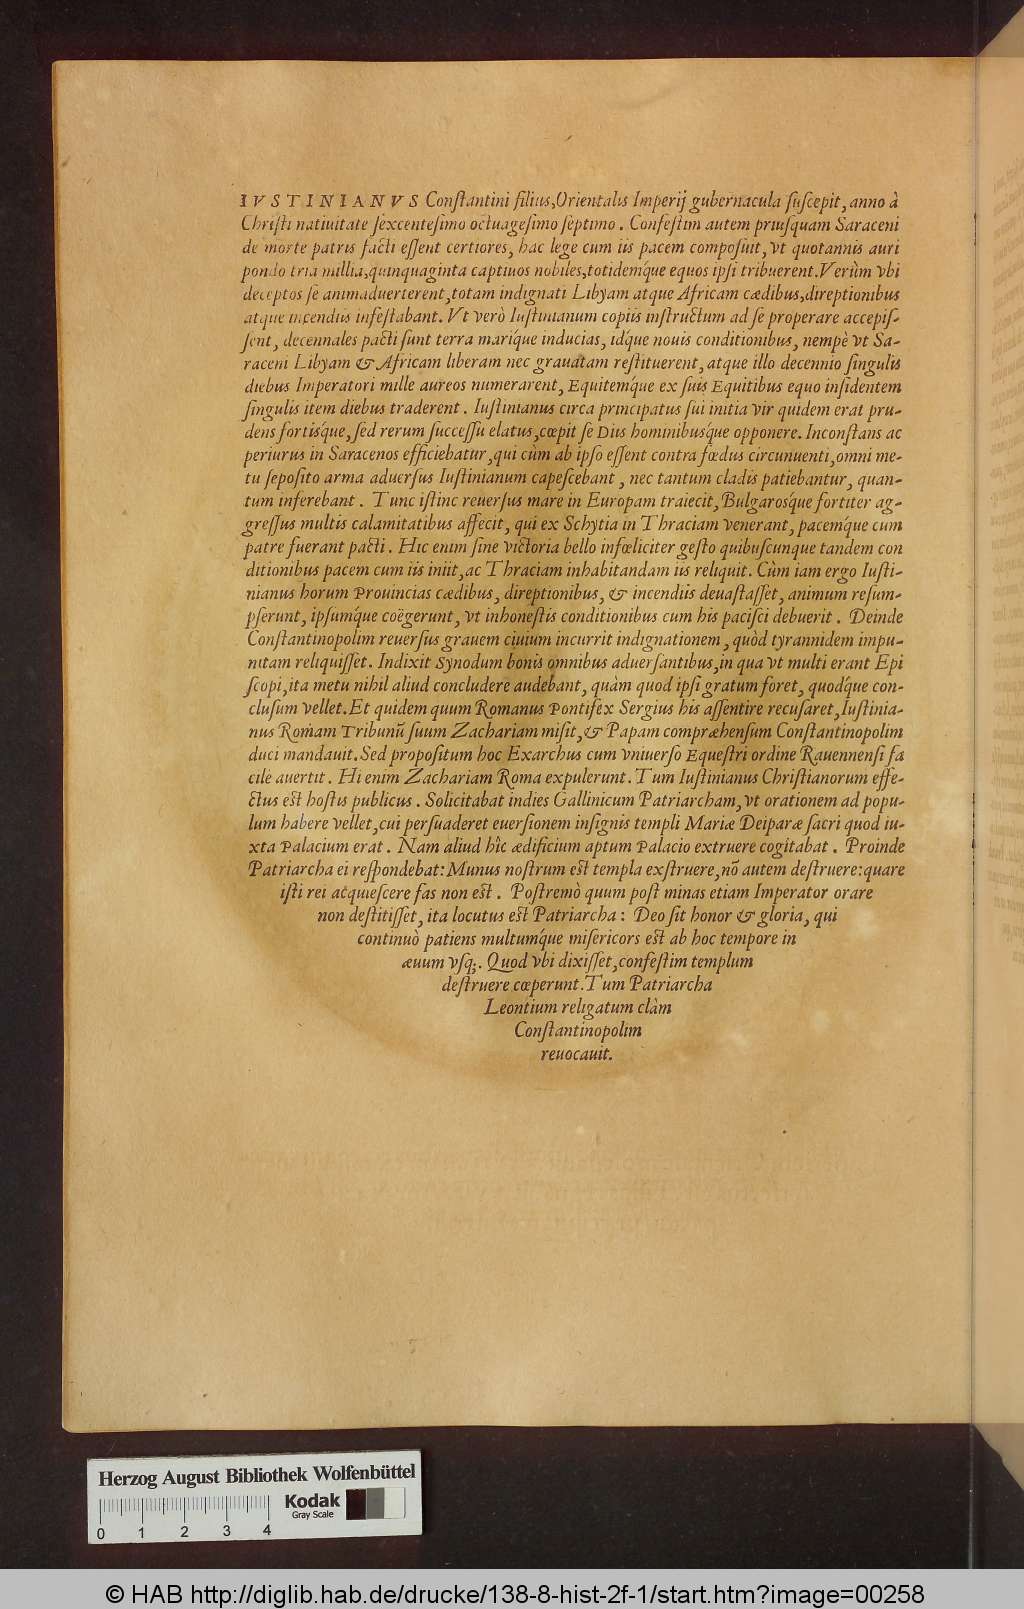 IVSTINIANVS Conſtantini filius, Orientalis Imperij gubernacula ſuſcepit, anno à
Chriſti natiuitate ſexcenteſimo octuageſimo ſeptimo. Confeſtim autem priuſquam Saraceni
de morte patris facti eſſent certiores, hac lege cum iis pacem compoſuit, vt quotannis auri
pondo tria millia, quinquaginta captiuos nobiles, totidémque equos ipſi tribuerent. Verùm vbi
deceptos ſe animaduerterent, totam indignati Libyam atque Africam cædibus, direptionibus
atque incendiis infeſtabant. Vt verò Iuſtinianum copiis inſtructum ad ſe properare accepiſ-
ſent, decennales pacti ſunt terra maríque inducias, idque nouis conditionibus, nempè vt Sa-
raceni Libyam & Africam liberam nec grauatam reſtituerent, atque illo decennio ſingulis
diebus Imperatori mille aureos numerarent, Equitémque ex ſuis Equitibus equo inſidentem
ſingulis item diebus traderent. Iuſtinianus circa principatus ſui initia vir quidem erat pru-
dens fortíſque, ſed rerum ſucceſſu elatus, cœpit ſe Diis hominibúſque opponere. Inconſtans ac
periurus in Saracenos efficiebatur, qui cùm ab ipſo eſſent contra fœdus circunuenti, omni me-
tu ſepoſito arma aduerſus Iuſtinianum capeſcebant, nec tantum cladis patiebantur, quan-
tum inferebant. Tunc iſtinc reuerſus mare in Europam traiecit, Bulgaróſque fortiter ag-
greſſus multis calamitatibus affecit, qui ex Schytia in Thraciam venerant, pacémque cum
patre fuerant pacti. Hic enim ſine victoria bello infœliciter geſto quibuſcunque tandem con
ditionibus pacem cum iis iniit, ac Thraciam inhabitandam iis reliquit. Cùm iam ergo Iuſti-
nianus horum Prouincias cædibus, direptionibus, & incendiis deuaſtaſſet, animum reſum-
pſerunt, ipſúmque coëgerunt, vt inhoneſtis conditionibus cum his paciſci debuerit. Deinde
Conſtantinopolim reuerſus grauem ciuium incurrit indignationem, quòd tyrannidem impu-
nitam reliquiſſet. Indixit Synodum bonis omnibus aduerſantibus, in qua vt multi erant Epi
ſcopi, ita metu nihil aliud concludere audebant, quàm quod ipſi gratum foret, quódque con-
cluſum vellet. Et quidem quum Romanus Pontifex Sergius his aſſentire recuſaret, Iuſtinia-
nus Romam Tribunũ ſuum Zachariam miſit, & Papam compræhenſum Conſtantinopolim
duci mandauit. Sed propoſitum hoc Exarchus cum vniuerſo Equeſtri ordine Rauennenſi fa
cile auertit. Hi enim Zachariam Roma expulerunt. Tum Iuſtinianus Chriſtianorum effe-
ctus eſt hoſtis publicus. Solicitabat indies Gallinicum Patriarcham, vt orationem ad popu-
lum habere vellet, cui perſuaderet euerſionem inſignis templi Mariæ Deiparæ ſacri quod iu-
xta Palacium erat. Nam aliud hîc ædificium aptum Palacio extruere cogitabat. Proinde
Patriarcha ei reſpondebat: Munus noſtrum eſt templa exſtruere, nõ autem deſtruere: quare
iſti rei acquieſcere fas non eſt. Poſtremò quum poſt minas etiam Imperator orare
non deſtitiſſet, ita locutus eſt Patriarcha: Deo ſit honor & gloria, qui
continuò patiens multúmque miſericors eſt ab hoc tempore in
æuum vſq;. Quod vbi dixiſſet, confeſtim templum
deſtruere cœperunt. Tum Patriarcha
Leontium religatum clàm
Conſtantinopolim
reuocauit.
Herzog August Bibliothek Wolfenbüttel
Kodak
Gray Scale
0 1 2 3 4
© HAB http://diglib.hab.de/drucke/138-8-hist-2f-1/start.htm?image=00258